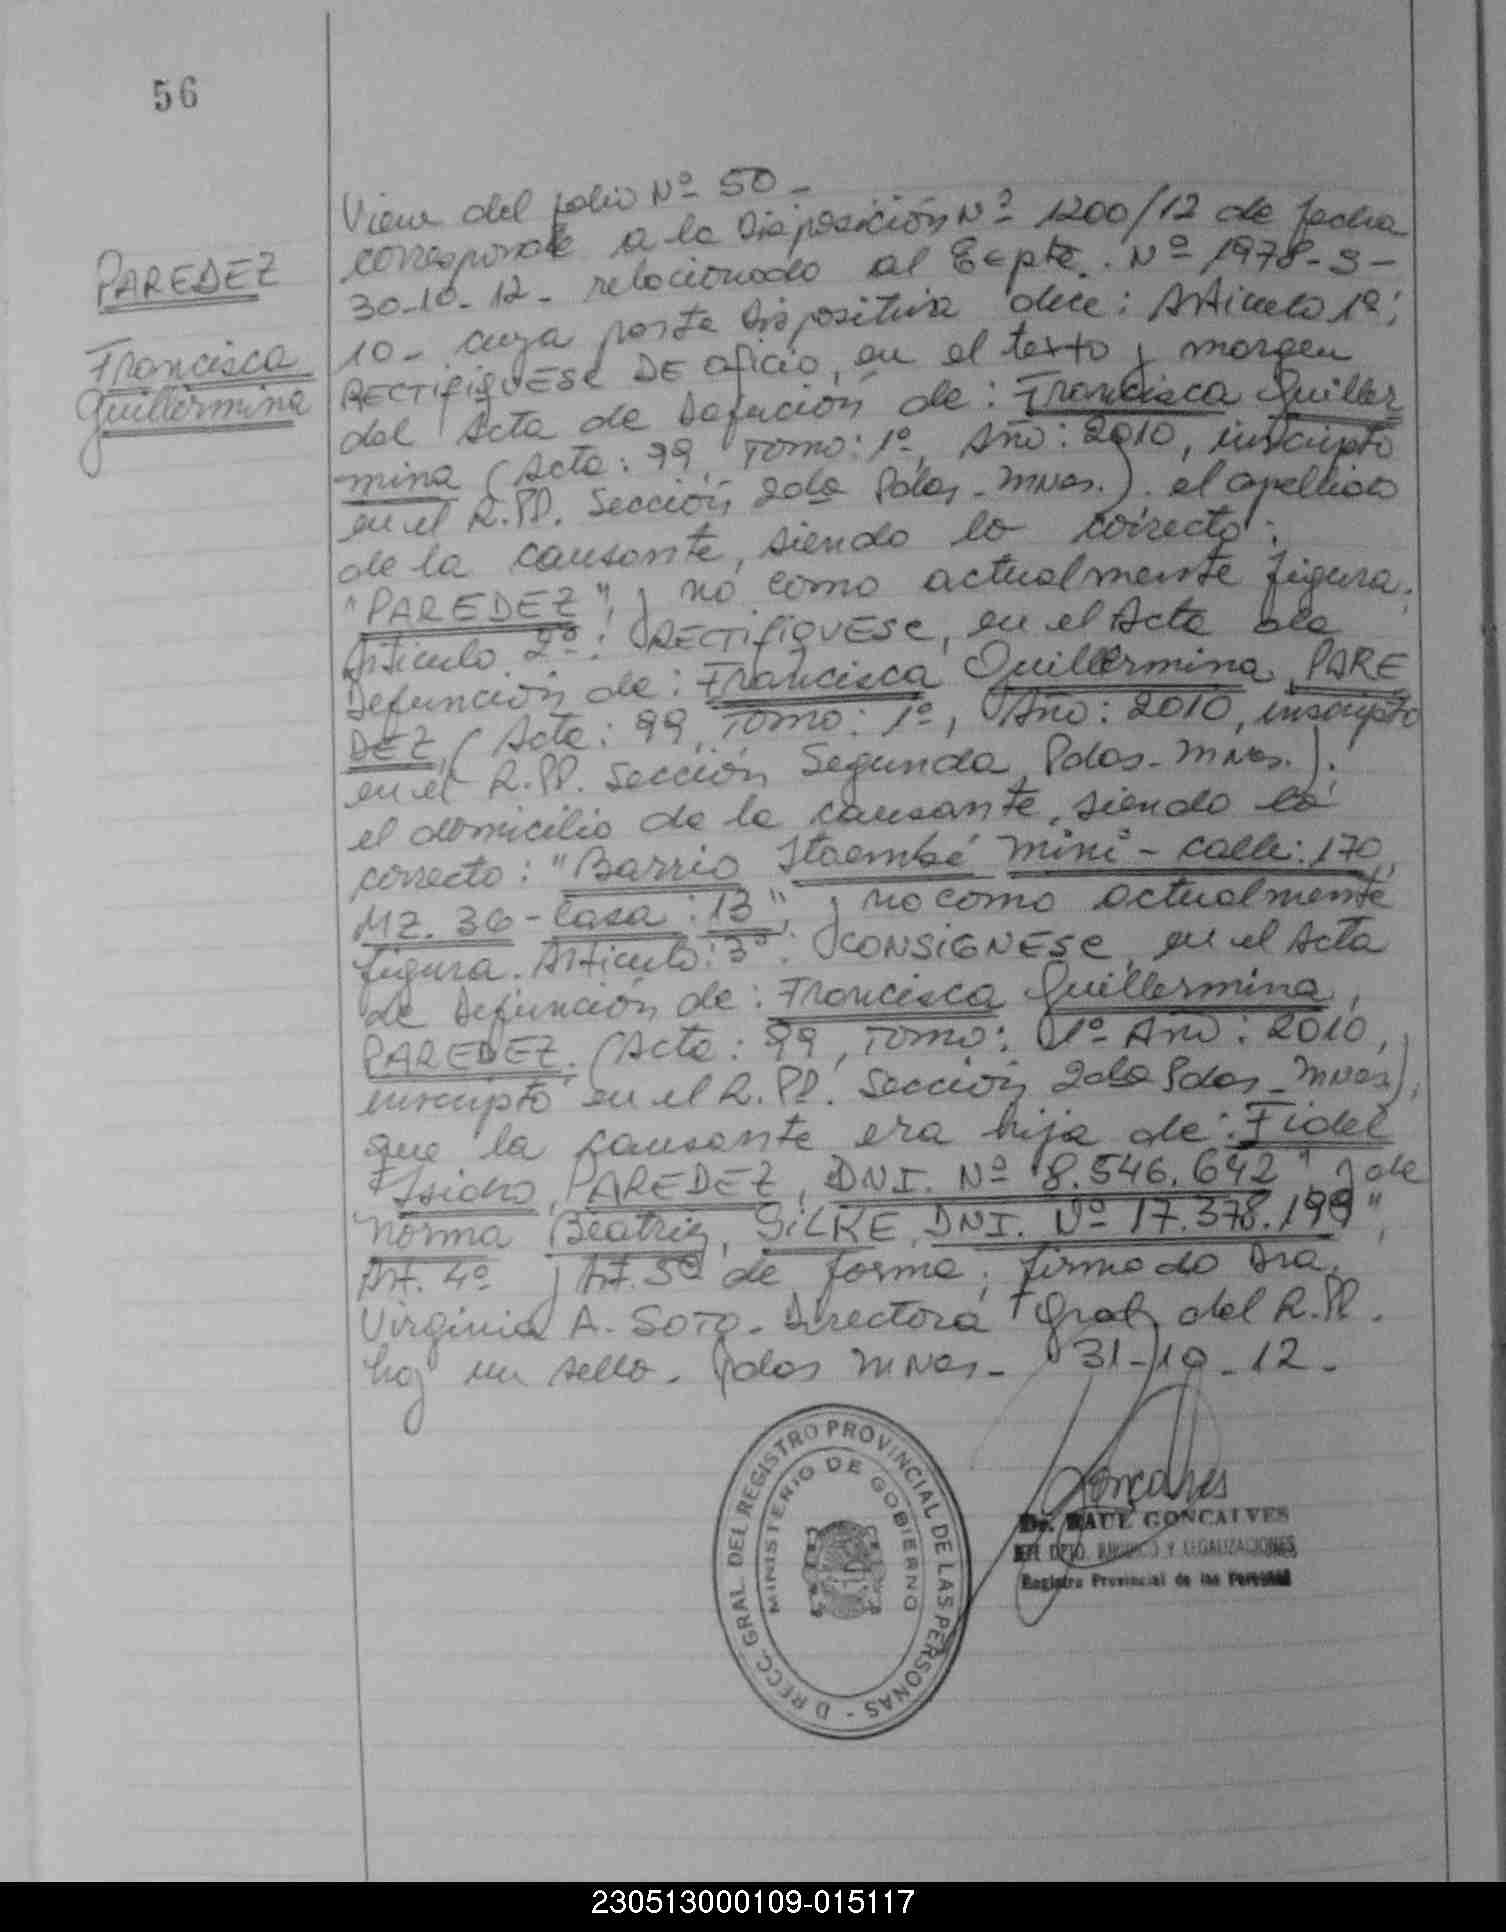 56
PAREDEZ
Francisca
Guillermina
Viene del folio Nº 50 -
corresponde a la Disposición Nº 1200/12 de fecha
30-10-12 - relacionado al Expte. Nº 1978-S-
10- cuya parte Dispositiva dice: Articulo 1º:
RECTIFIQUESE DE oficio, en el texto y margen
del Acta de Defunción de: Francisca Guiller
mina (Acta: 99, Tomo: 1º, Año: 2010, inscripto
en el R.PP. Sección 2da Pdas - Mnes.). el apellido
de la causante, siendo lo correcto:
"PAREDEZ" y no como actualmente figura.
Articulo 2º: RECTIFIQUESE, en el Acta de
Defunción de: Francisca Guillermina PARE
DEZ, (Acta: 99, Tomo: 1º, Año: 2010, inscripto
en el R.PP. Sección Segunda, Pdas - Mnes.).
el domicilio de la causante, siendo lo
correcto: "Barrio Itaembé Mini - calle: 170,
MZ. 36 - Casa: 13", y no como actualmente
figura. Articulo: 3º: CONSIGNESE, en el Acta
de Defunción de: Francisca Guillermina,
PAREDEZ. (Acta: 99, Tomo: 1º Año: 2010,
inscripto en el R.PP. Sección 2da Pdas - Mnes),
que la causante era hija de: Fidel
"Isidro, PAREDEZ, DNI. Nº 8.546.642" y de
Norma Beatriz, GILKE, DNI. Nº 17.378.199",
Art. 4º y Art. 5º de forma; firmado Dra.
Virginia A. SOTO - Directora Gral del R.PP.
hay un sello - Pdas Mnes - 31-10-12 -
DIRECC. GRAL. DEL REGISTRO PROVINCIAL DE LAS PERSONAS -
MINISTERIO DE GOBIERNO
Goncalves
Dr. RAUL GONCALVES
DPTO. JURIDICO Y LEGALIZACIONES
Registro Provincial de las Personas
230513000109-015117